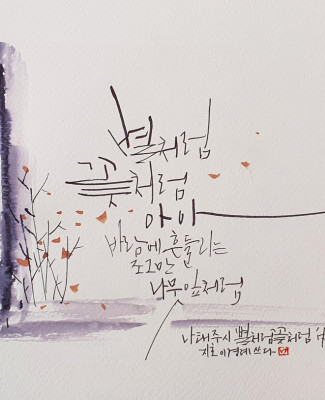 별처럼
꽃처럼
아아
바람에 흔들리는
조그만
나무잎처럼
나태주시 별처럼꽃처럼
지호 이경례 쓰다